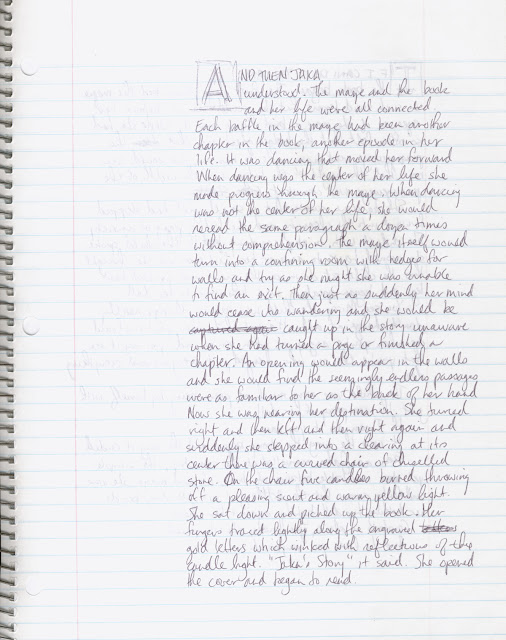 AND THEN JAKA
understood. The maze and the book
and her life were all connected.
Each battle in the maze had been another
chapter in the book, another episode in her
life. It was dancing that moved her forward
When dancing was the center of her life she
made progress through the maze. When dancing
was not the center of her life, she would
reread the same paragraph a dozen times
without comprehension. The maze itself would
turn into a confining room with hedges for
walls and try as she might she was unable
to find an exit. Then just as suddenly her mind
would cease its wandering and she would be
captured again caught up in the story unaware
when she had turned a page or finished a
chapter. An opening would appear in the walls
and she would find the seemingly endless passages
were as familiar to her as the back of her hand
Now she was nearing her destination. She turned
right and then left and then right again and
suddenly she stepped into a clearing at its
center there was a curved chair of chiselled
stone. On the chair five candles burned throwing
off a pleasing scent and warm yellow light.
She sat down and picked up the book. Her
fingers traced lightly along the engraved
gold letters which winked with reflections of the
candle light. "Jaka's Story" it said. She opened
the cover and began to read.